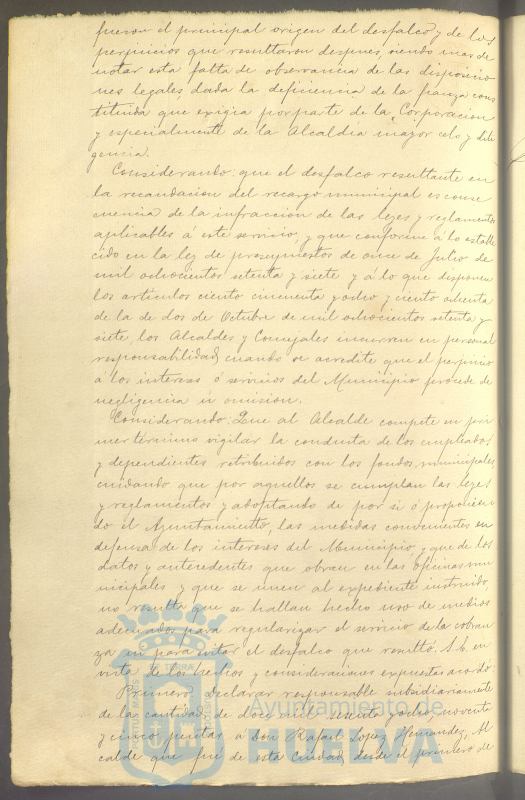 fueron el principal origen del desfalco y de los
perjuicios que resultaron despues, siendo mas de
notar esta falta de observancia de las disposicio
nes legales, dada la deficiencia de la fianza cons
tituida que exigia por parte de la Corporacion
y especialmente de la Alcaldia mayor celo y dili
gencia.
Considerando: que el desfalco resultante en
la recaudacion del recargo municipal es conse
cuencia de la infraccion de las leyes y reglamentos
aplicables á este servicio, y que conforme á lo estable
cido en la ley de presupuestos de once de Julio de
mil ochocientos setenta y siete y á lo que disponen
los artículos ciento cincuenta y ocho y ciento ochenta
de la de dos de Octubre de mil ochocientos setenta y
siete, los Alcaldes y Concejales incurren en personal
responsabilidad, cuando se acredite que el perjuicio
á los intereses ó servicios del Municipio procede de
negligencia ú omision.
Considerando: Que al Alcalde compete en pri
mer término vigilar la conducta de los empleados
y dependientes retribuidos con los fondos municipales,
cuidando que por aquellos se cumplan las leyes
y reglamentos y adoptando de por sí ó proponien
do el Ayuntamiento, las medidas convenientes en
defensa de los intereses del Municipio, y que de los
datos y antecedentes que obran en las oficinas mu
nicipales y que se unen al expediente instruido,
no resulta que se hallan hecho uso de medios
adecuados para regularizar el servicio de la cobran
za ni para evitar el desfalco que resultó. S. E. en
vista de los hechos y consideraciones expuestas acordó:
Primero: declarar responsable subsidiariamente
de las cantidad de doce mil ciento y ocho, noventa
y cinco pesetas á Don Rafael Lopez Hernandez, Al
calde que fué de esta Ciudad, desde el primero de
Ayuntamiento de
HUELVA